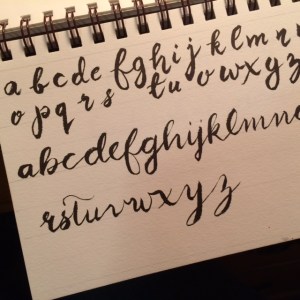 a b c d e f g h i j k l m n
o p q r s t u v w x y z
abcdefghijklmn
rstuvwxyz